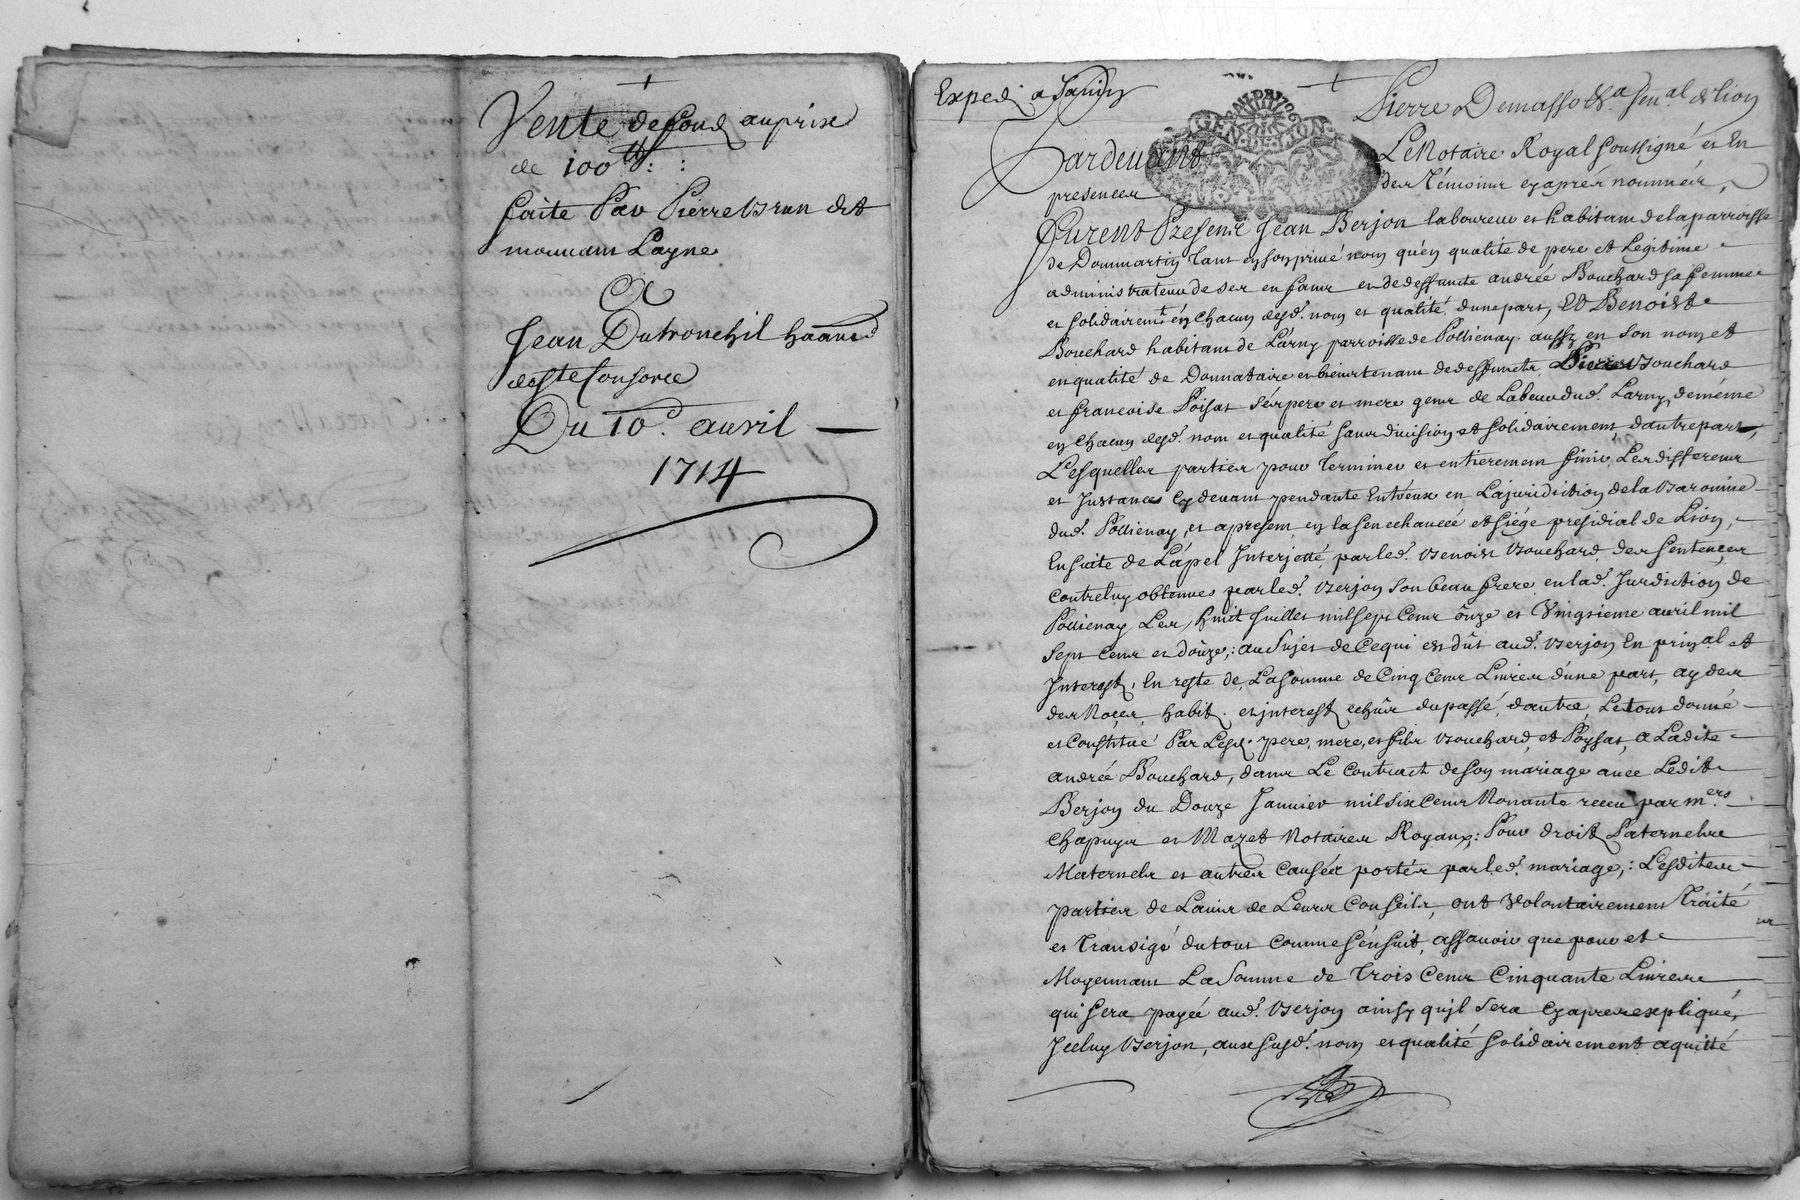 Vente de fond au prix
de 100 ₶:
faite Par Pierre Brun dit
mouuant Layne
A
Jean Dutronchil
de Ste Consorce
Du 10e. auril
1714
Exped.
Pardeuant
Pierre Demasso
GEN. DE LION
Le Notaire Royal soussigné et En
presences des Témoins cyaprés nommés,
furent Présens Jean Berjon laboureur et habitant de la parroisse
de Dommartin tant en son priué nom qu'en qualité de pere et Legitime
administrateur de ses enfans et de deffuncte andrée Bouchard sa femme
et solidairemt. en chacun desd. nom et qualité d'une part, Et Benoist
Bouchard habitant de Larny parroisse de Pollienay aussy en son nom et
en qualité de Donnataire et bientenant de deffuncts Pierre Bouchard
et francoise Poisat ses pere et mere gens de Labeur dud. Larny, de méme
en chacun desd. nom et qualité sans diuision et solidairement d'autre part,
Lesquelles parties pour terminer et entierement finir Les differens
et Instances cy deuant pendante Entr'eux en La juridiction de la Baronnie
dud. Pollienay, et apresent en la senechaucée et siége présidial de Lion,
Ensuite de L'apel Interjetté par led. Benoist Bouchard des sentences
contre luy obtenues par led. Berjon son beau frere en lad. Jurdiction de
Pollienay Les huit Juillet mil sept Cens onze et Vingtieme auril mil
sept cens et douze,: au Sujet de Ce qui est dût aud. Berjon En prinal et
Interest, En reste de La somme de Cinq Cens Liures d'une part, ay des
des Noces, habit. et interest echûs du passé, d'autre, Le tout donné
et Constitué Par Lesd. pere, mere, et fils Bouchard, et Poysat, a Ladite
andrée Bouchard, dans Le Contract de son mariage auec Ledit
Berjon du Douze Januier mil six Cens Nonante receu par mers.
Chapuys et Mazet Notaires Royaux,: Pour droit Paternels
Maternels et autres Causés portés par led. mariage,: Lesdites
parties de L'auis de Leurs Conseils, ont Volontairement Traité
et Transigé du tout comme s'ensuit, assauoir que pour et
Moyennant La Somme de Trois Cens Cinquante Liures
qui sera payée aud. Berjon ainsy qu'jl sera cy apres expliqué,
Jceluy Berjon, aux susd. nom et qualité solidairement a quitté